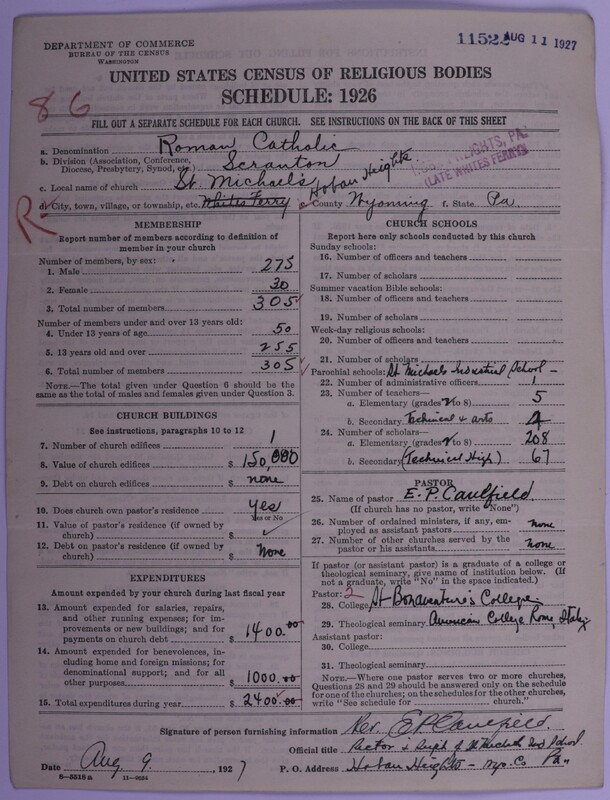 DEPARTMENT OF COMMERCE
BUREAU OF THE CENSUS
WASHINGTON
11522 AUG 11 1927
UNITED STATES CENSUS OF RELIGIOUS BODIES
SCHEDULE: 1926
86
FILL OUT A SEPARATE SCHEDULE FOR EACH CHURCH. SEE INSTRUCTIONS ON THE BACK OF THIS SHEET
a. Denomination Roman Catholic
b. Division (Association, Conference, Diocese, Presbytery, Synod, etc.) Scranton
HEIGHTS, PA.
(LATE WHITES FERRY)
c. Local name of church St. Michael's
R
d. City, town, village, or township, etc. Whites Ferry Hoban Heights e. County Wyoming f. State Pa.
MEMBERSHIP
Report number of members according to definition of member in your church
Number of members, by sex:
1. Male 275
2. Female 30
3. Total number of members 305
Number of members under and over 13 years old:
4. Under 13 years of age 50
5. 13 years old and over 255
6. Total number of members 305
NOTE.—The total given under Question 6 should be the same as the total of males and females given under Question 3.
CHURCH BUILDINGS
See instructions, paragraphs 10 to 12
7. Number of church edifices 1
8. Value of church edifices $ 150,000
9. Debt on church edifices $ none
10. Does church own pastor's residence? Yes
Yes or No
11. Value of pastor's residence (if owned by church) $
12. Debt on pastor's residence (if owned by church) $ None
EXPENDITURES
Amount expended by your church during last fiscal year
13. Amount expended for salaries, repairs, and other running expenses; for improvements or new buildings; and for payments on church debt $ 1400.00
14. Amount expended for benevolences, including home and foreign missions; for denominational support; and for all other purposes $ 1000.00
15. Total expenditures during year $ 2400.00
CHURCH SCHOOLS
Report here only schools conducted by this church
Sunday schools:
16. Number of officers and teachers
17. Number of scholars
Summer vacation Bible schools:
18. Number of officers and teachers
19. Number of scholars
Week-day religious schools:
20. Number of officers and teachers
21. Number of scholars
Parochial schools: St Michaels Industrial School -
22. Number of administrative officers 1
23. Number of teachers—
a. Elementary (grades to 8) 5
b. Secondary Technical & arts 4
24. Number of scholars—
a. Elementary (grades to 8) 208
b. Secondary (Technical High) 67
PASTOR
25. Name of pastor E. P. Caulfield.
(If church has no pastor, write "None")
26. Number of ordained ministers, if any, employed as assistant pastors none
27. Number of other churches served by the pastor or his assistants none
If pastor (or assistant pastor) is a graduate of a college or theological seminary, give name of institution below. (If not a graduate, write "No" in the space indicated.)
Pastor: 2
28. College St Bonaventure's College
29. Theological seminary American College Rome Italy
Assistant pastor:
30. College
31. Theological seminary
NOTE.—Where one pastor serves two or more churches, Questions 28 and 29 should be answered only on the schedule for one of the churches; on the schedules for the other churches, write "See schedule for church."
Signature of person furnishing information Rev. E P Caulfield.
Official title Rector & Supt of St Michaels Ind School
Date Aug 9, 1927 P. O. Address Hoban Heights - Wyo. Co Pa.
8-5518a 11-9034